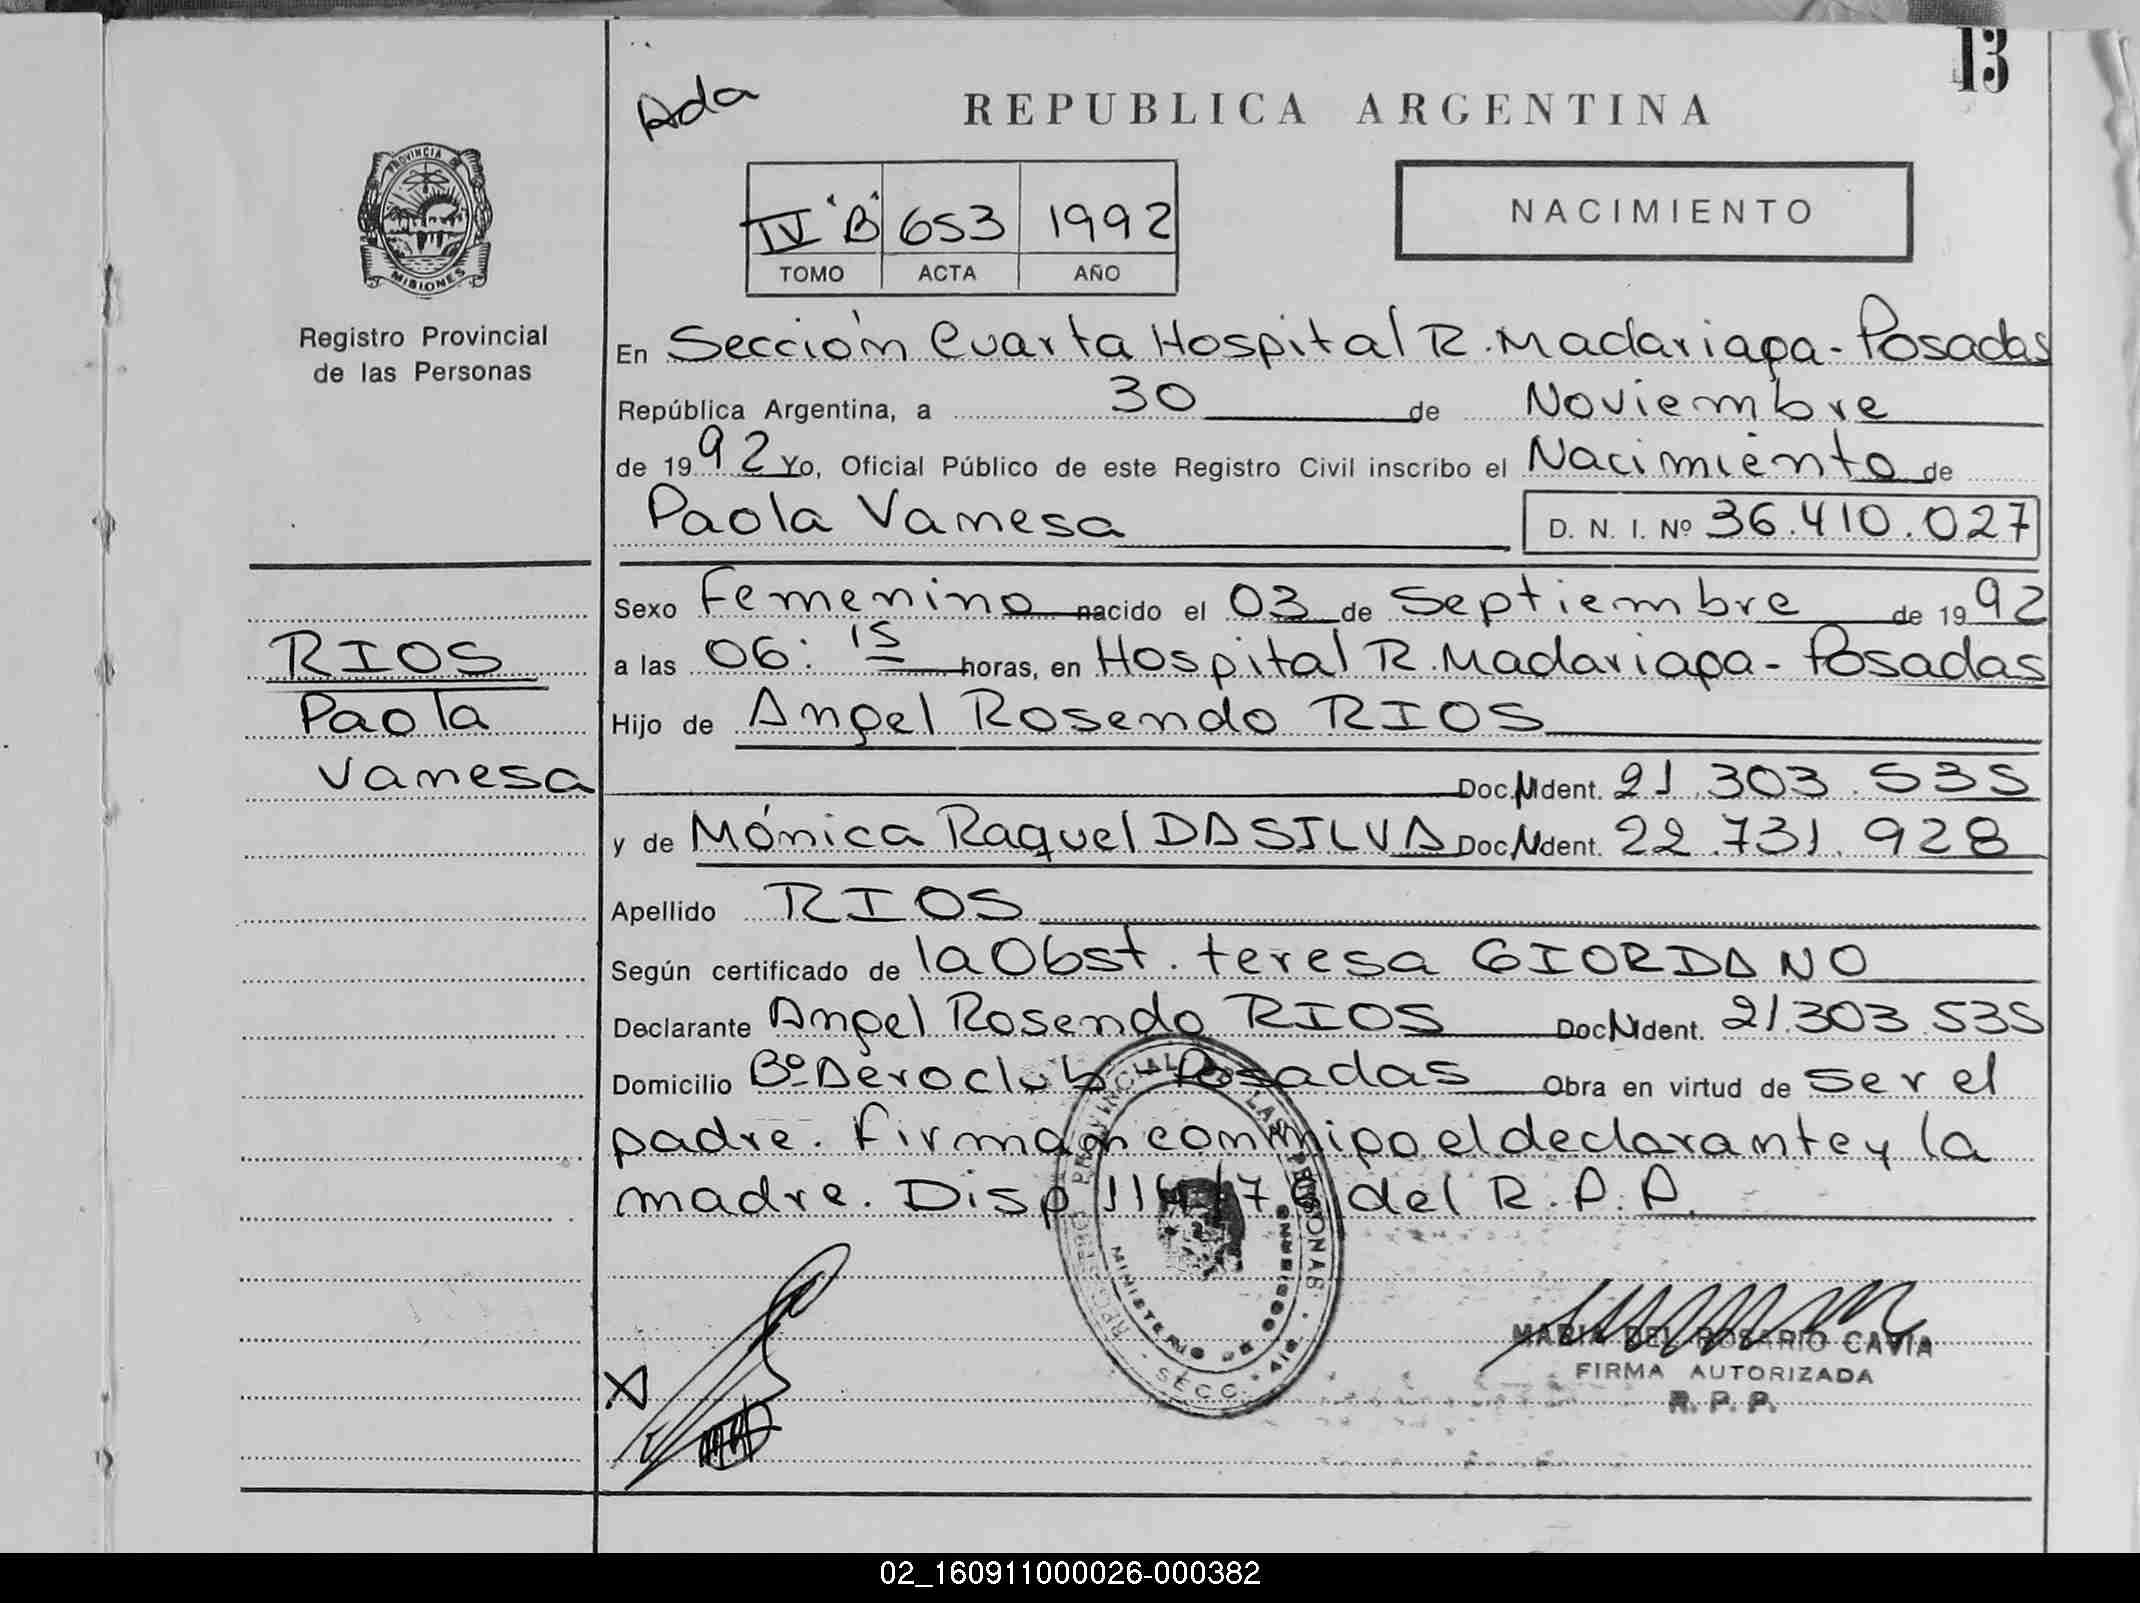 13
Ada
REPUBLICA ARGENTINA
PROVINCIA DE
MISIONES
Registro Provincial
de las Personas
IV "B" 653 1992
TOMO ACTA AÑO
NACIMIENTO
En Sección Cuarta Hospital R. Madariaga - Posadas
República Argentina, a 30 de Noviembre
de 1992 Yo, Oficial Público de este Registro Civil inscribo el Nacimiento de
Paola Vanesa D. N. I. Nº 36.410.027
Sexo Femenino nacido el 03 de Septiembre de 1992
a las 06:15 horas, en Hospital R. Madariaga - Posadas
Hijo de Angel Rosendo RIOS
Doc. N Ident. 21.303.535
y de Mónica Raquel DA SILVA Doc. N Ident. 22.731.928
Apellido RIOS
Según certificado de la Obst. teresa GIORDANO
Declarante Angel Rosendo RIOS Doc N Ident. 21.303.535
Domicilio Bº Aeroclub Posadas Obra en virtud de ser el
padre. Firman conmigo el declarante y la
madre. Disp 114/76 del R.P.P.
RIOS
Paola
Vanesa
REGISTRO PROVINCIAL DE LAS PERSONAS
MINISTERIO DE GOBIERNO
SECC. 4ta
MARIA DEL ROSARIO CAVIA
FIRMA AUTORIZADA
R. P. P.
02_160911000026-000382